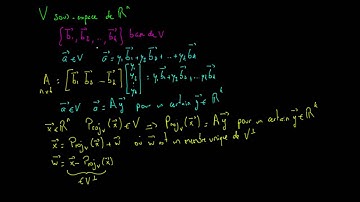 V sous-espace de ℝⁿ
{b⃗₁, b⃗₂, ..., b⃗ₖ} base de V
a⃗ ∈ V a⃗ = y₁b⃗₁ + y₂b⃗₂ + ... + yₖb⃗ₖ
A n×k = [b⃗₁ b⃗₂ ... b⃗ₖ] [y₁ y₂ ⋮ yₖ] = y₁b⃗₁ + y₂b⃗₂ + ... yₖb⃗ₖ
a⃗ ∈ V a⃗ = Ay⃗ pour un certain y⃗ ∈ ℝᵏ
x⃗ ∈ ℝⁿ Proj_V(x⃗) ∈ V ⇒ Proj_V(x⃗) = Ay⃗ pour un certain y⃗ ∈ ℝᵏ
x⃗ = Proj_V(x⃗) + w⃗ où w⃗ est un membre unique de V⊥
w⃗ = x⃗ - Proj_V(x⃗)
∈ V⊥